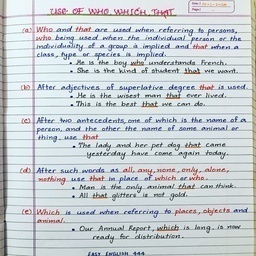 USE OF WHO, WHICH, THAT
(a) Who and that are used when referring to persons,
who being used when the individual person or the
individuality of a group is implied and that when a
class, type or species is implied.
• He is the boy who understands French.
• She is the kind of student that we want.
(b) After adjectives of superlative degree that is used.
• He is the wisest man that ever lived.
• This is the best that we can do.
(c) After two antecedents, one of which is the name of a
person, and the other the name of some animal or
thing, use that
• The lady and her pet dog that came
yesterday have come again today.
(d) After such words as all, any, none, only, alone,
nothing use that in place of which or who.
• Man is the only animal that can think.
• All that glitters is not gold.
(e) Which is used when referring to places, objects and
animal.
• Our Annual Report, which is long, is now
ready for distribution.
EASY ENGLISH 444